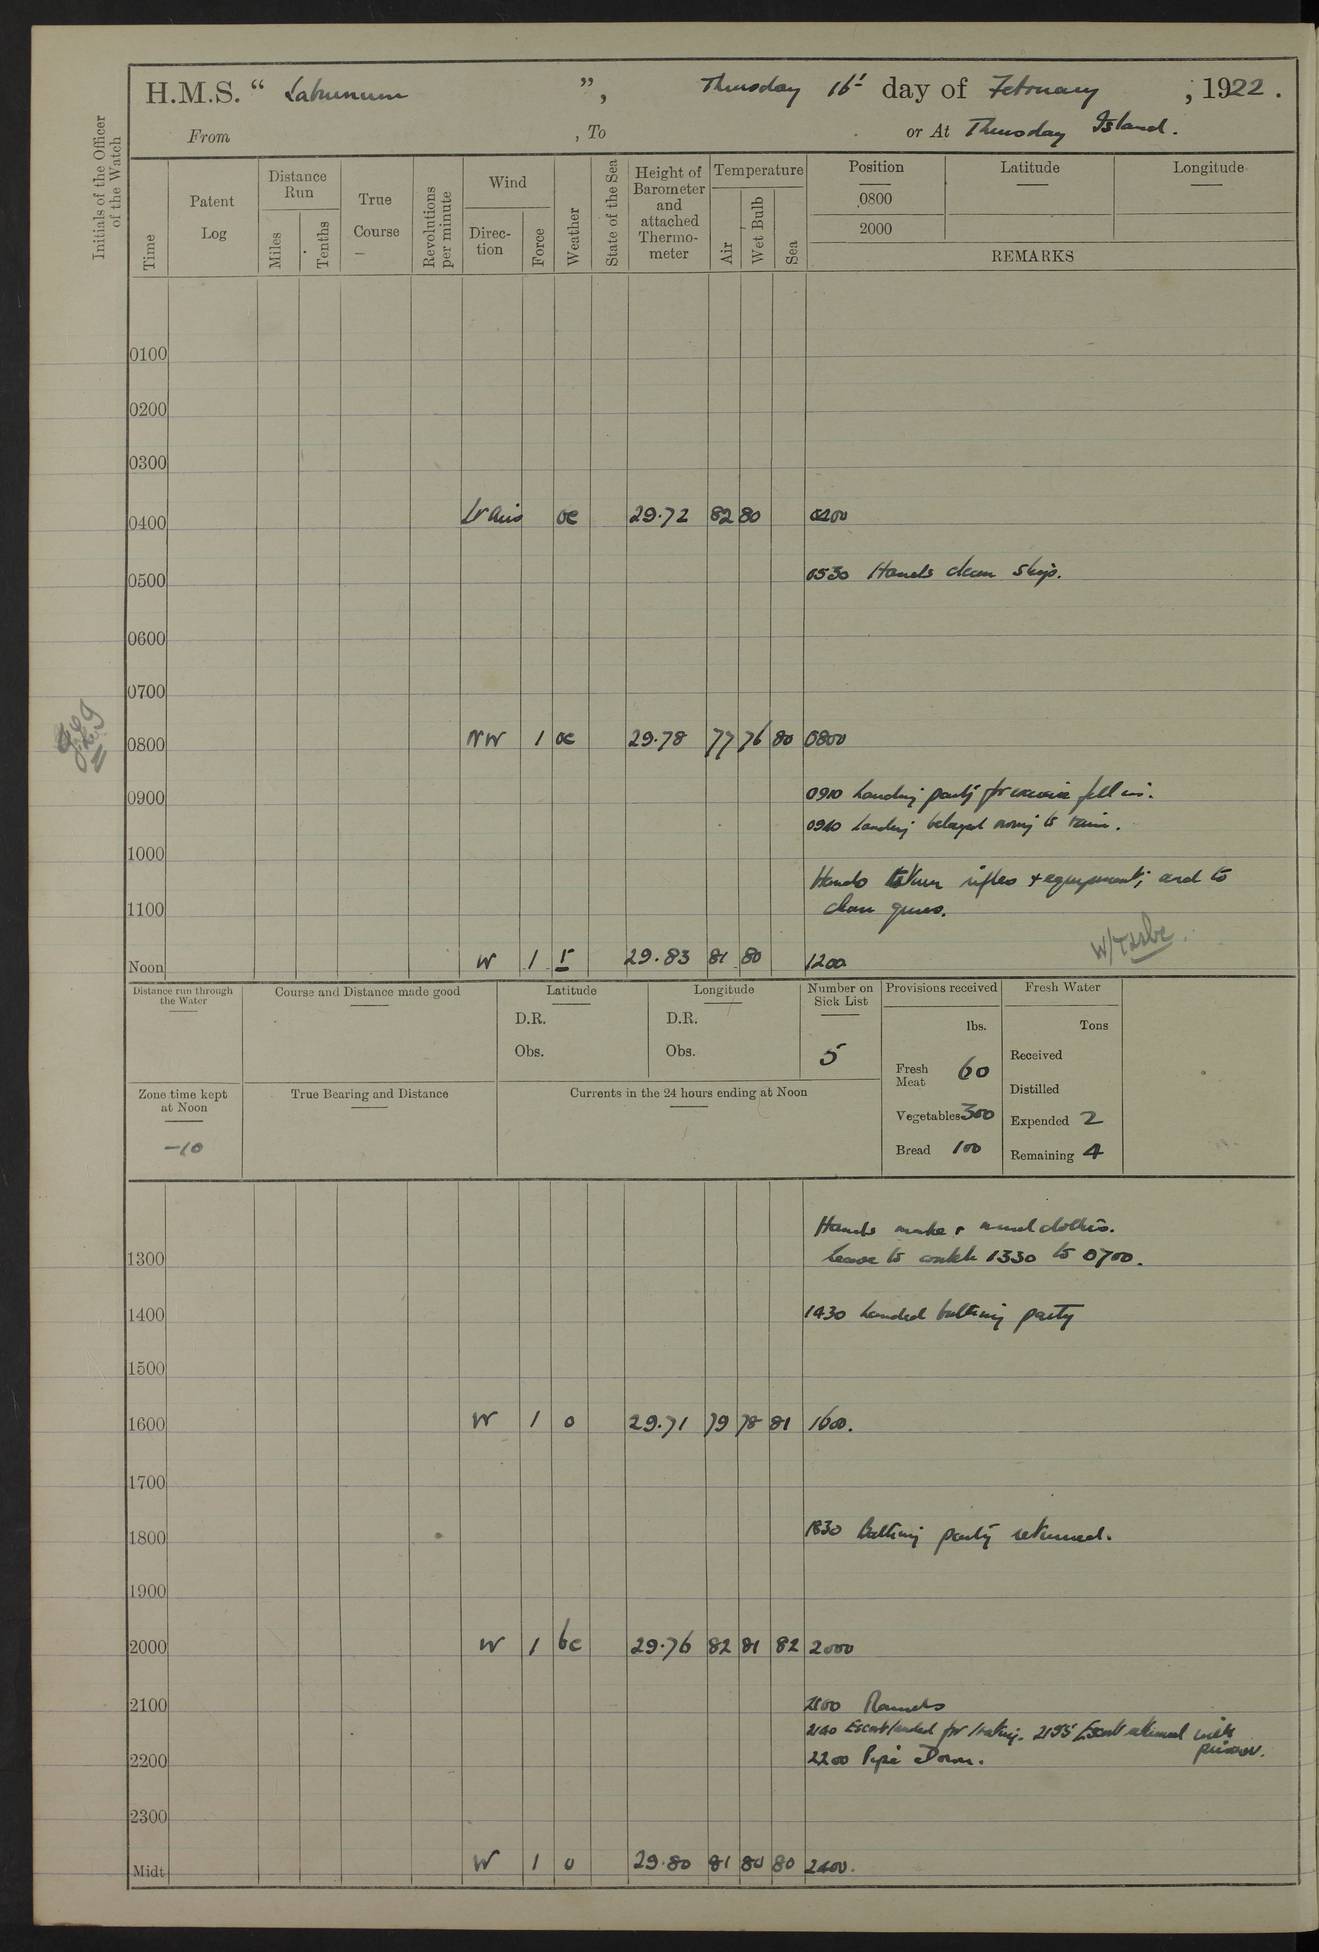 H.M.S. “ Laburnum ”, Thursday 16t day of February ; 1922.
From , To or At Thursday Island.
Initials of the Officer of the Watch
Time
Patent Log
Distance Run
Miles
Tenths
True Course
Revolutions per minute
Wind
Direc-tion
Force
Weather
State of the Sea
Height of Barometer and attached Thermo-meter
Temperature
Air
Wet Bulb
Sea
Position Latitude Longitude
0800
2000
REMARKS
0100
0200
0300
0400 Lt airs oc 29.72 82 80 0400
0500 0530 Hands clean ship.
0600
0700
0800 NW 1 oc 29.78 77 76 80 0800
0900 0910 Landing party for exercise fell in.
0920 Landing belayed owing to rain.
1000
Hands to clean rifles & equipment, and to
1100 clean guns.
Noon W 1 r 29.83 81 80 1200
Distance run through the Water
Course and Distance made good
Latitude
Longitude
Number on Sick List
Provisions received
Fresh Water
D.R. D.R. lbs. Tons
Obs. Obs. 5
Fresh Meat 60 Received
Distilled
Zone time kept at Noon
True Bearing and Distance
Currents in the 24 hours ending at Noon
Vegetables 300 Expended 2
-10 Bread 100 Remaining 4
Hands make & mend clothes.
1300 Leave to watch 1330 to 0700.
1400 1430 Landed bathing party
1500
1600 W 1 o 29.71 79 78 81 1600.
1700
1800 1830 Bathing party returned.
1900
2000 W 1 bc 29.76 82 81 82 2000
2100 2100 Rounds
2140 Escort landed for 2155 Escort returned with
prisoner.
2200 2200 Pipe Down.
2300
Midt W 1 o 29.80 81 80 80 2400.